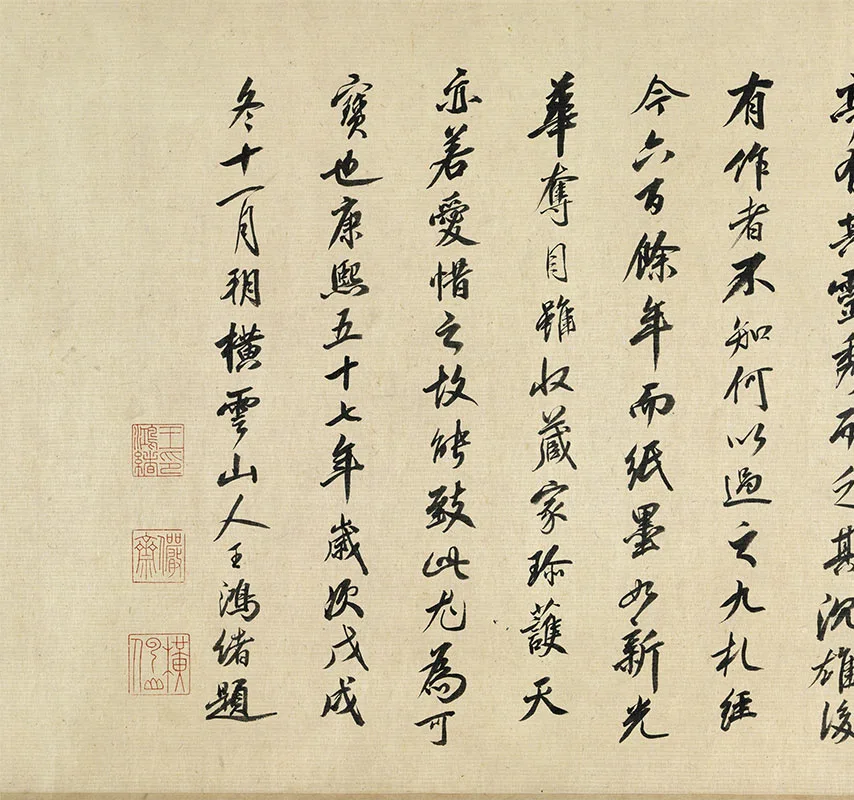 有其靈秀而乏其沉雄後
有作者不知何以過之九札經
今六百餘年而紙墨如新光
華奪目雖收藏家珍護天
亦若愛惜之故能致此尤為可
寶也康熙五十七年歲次戊戌
冬十一月朔橫雲山人王鴻緒題
王印鴻緒
儼齋
橫云山